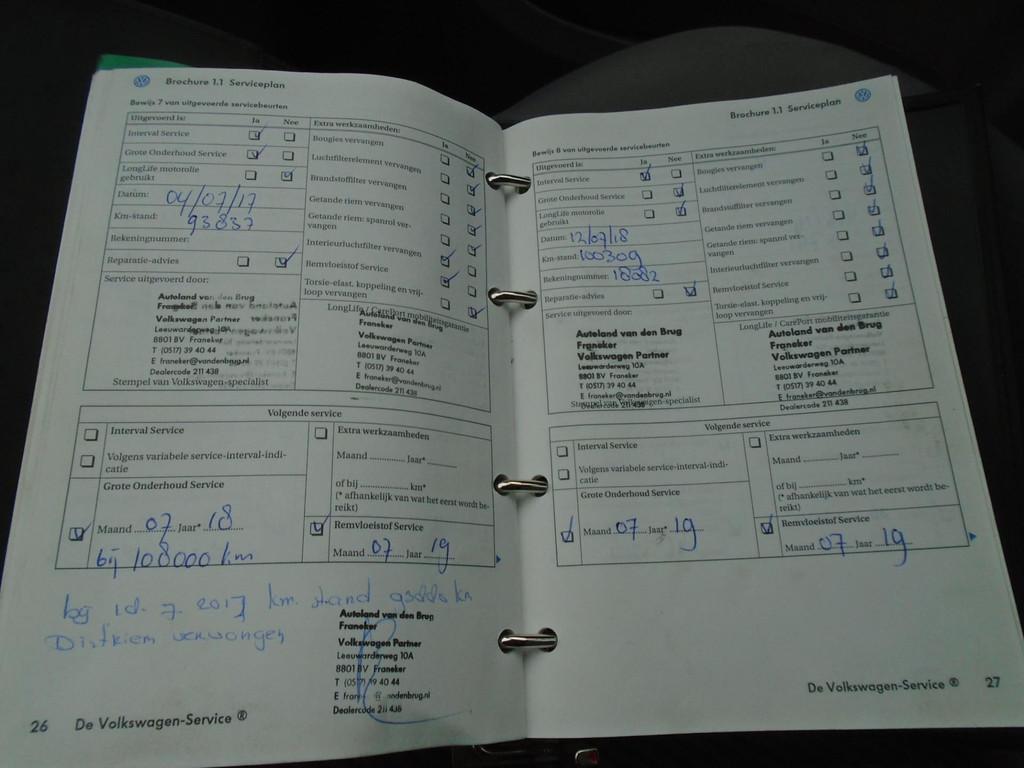 Brochure 1.1 Serviceplan
Bewijs 7 van uitgevoerde servicebeurten
Uitgevoerd is: Ja Nee
Interval Service
Grote Onderhoud Service
LongLife motorolie
gebruikt
Datum: 04/07/17
Km-stand: 93837
Rekeningnummer:
Reparatie-advies
Service uitgevoerd door:
Autoland van den Brug
Franeker
Volkswagen Partner
Leeuwarderweg 10A
8801 BV Franeker
T (0517) 39 40 44
E franeker@vandenbrug.nl
Dealercode 211 438
Stempel van Volkswagen-specialist
Extra werkzaamheden: Ja Nee
Bougies vervangen
Luchtfilterelement vervangen
Brandstoffilter vervangen
Getande riem vervangen
Getande riem: spanrol ver-
vangen
Interieurluchtfilter vervangen
Remvloeistof Service
Torsie-elast. koppeling en vrij-
loop vervangen
LongLife / CarePort mobiliteitsgarantie
Autoland van den Brug
Franeker
Volkswagen Partner
Leeuwarderweg 10A
8801 BV Franeker
T (0517) 39 40 44
E franeker@vandenbrug.nl
Dealercode 211 438
Volgende service
Interval Service
Volgens variabele service-interval-indi-
catie
Grote Onderhoud Service
Maand 07 Jaar* 18
bij 108000 km
Extra werkzaamheden
Maand ............... Jaar* ..........
of bij ............... km*
(* afhankelijk van wat het eerst wordt be-
reikt)
Remvloeistof Service
Maand 07 Jaar 19
7. 2017 km. stand
Autoland van den Brug
Franeker
Volkswagen Partner
Leeuwarderweg 10A
8801 BV Franeker
T (0517) 39 40 44
E franeker@vandenbrug.nl
Dealercode 211 438
26 De Volkswagen-Service ®
Brochure 1.1 Serviceplan
Bewijs 8 van uitgevoerde servicebeurten
Uitgevoerd is: Ja Nee
Interval Service
Grote Onderhoud Service
LongLife motorolie
gebruikt
Datum: 12/07/18
Km-stand: 100309
Rekeningnummer: 18082
Reparatie-advies
Service uitgevoerd door:
Autoland van den Brug
Franeker
Volkswagen Partner
Leeuwarderweg 10A
8801 BV Franeker
T (0517) 39 40 44
E franeker@vandenbrug.nl
Stempel van Volkswagen-specialist
Dealercode 211 438
Extra werkzaamheden: Ja Nee
Bougies vervangen
Luchtfilterelement vervangen
Brandstoffilter vervangen
Getande riem vervangen
Getande riem: spanrol ver-
vangen
Interieurluchtfilter vervangen
Remvloeistof Service
Torsie-elast. koppeling en vrij-
loop vervangen
LongLife / CarePort mobiliteitsgarantie
Autoland van den Brug
Franeker
Volkswagen Partner
Leeuwarderweg 10A
8801 BV Franeker
T (0517) 39 40 44
E franeker@vandenbrug.nl
Dealercode 211 438
Volgende service
Interval Service
Volgens variabele service-interval-indi-
catie
Grote Onderhoud Service
Maand 07 Jaar* 19
Extra werkzaamheden
Maand ............... Jaar* ..........
of bij ............... km*
(* afhankelijk van wat het eerst wordt be-
reikt)
Remvloeistof Service
Maand 07 Jaar 19
De Volkswagen-Service ® 27